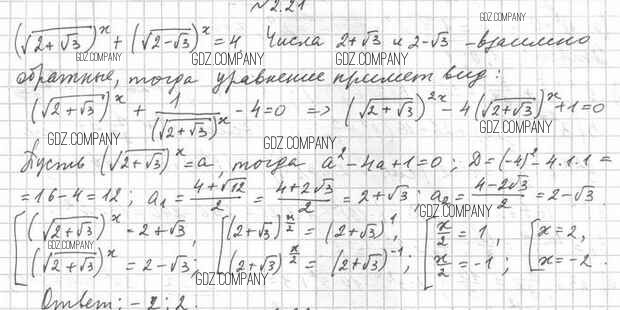 №2.21
(√(2+√3))^x + (√(2-√3))^x = 4 Числа 2+√3 и 2-√3 - взаимно
обратные, тогда уравнение примет вид:
(√(2+√3))^x + 1/(√(2+√3))^x - 4=0 => (√(2+√3))^2x - 4(√(2+√3))^x + 1=0
Пусть (√(2+√3))^x = a, тогда a² - 4a + 1 = 0; D = (-4)² - 4·1·1 =
= 16 - 4 = 12; a₁ = (4+√12)/2 = (4+2√3)/2 = 2+√3; a₂ = (4-2√3)/2 = 2-√3.
[(√(2+√3))^x = 2+√3, [(2+√3)^(x/2) = (2+√3)^1, [x/2 = 1, [x = 2,
(√(2+√3))^x = 2-√3; (2+√3)^(x/2) = (2+√3)^-1; x/2 = -1; x = -2.
Ответ: -2; 2.
GDZ.COMPANY
GDZ.COMPANY
GDZ.COMPANY
GDZ.COMPANY
GDZ.COMPANY
GDZ.COMPANY
GDZ.COMPANY
GDZ.COMPANY
GDZ.COMPANY
GDZ.COMPANY